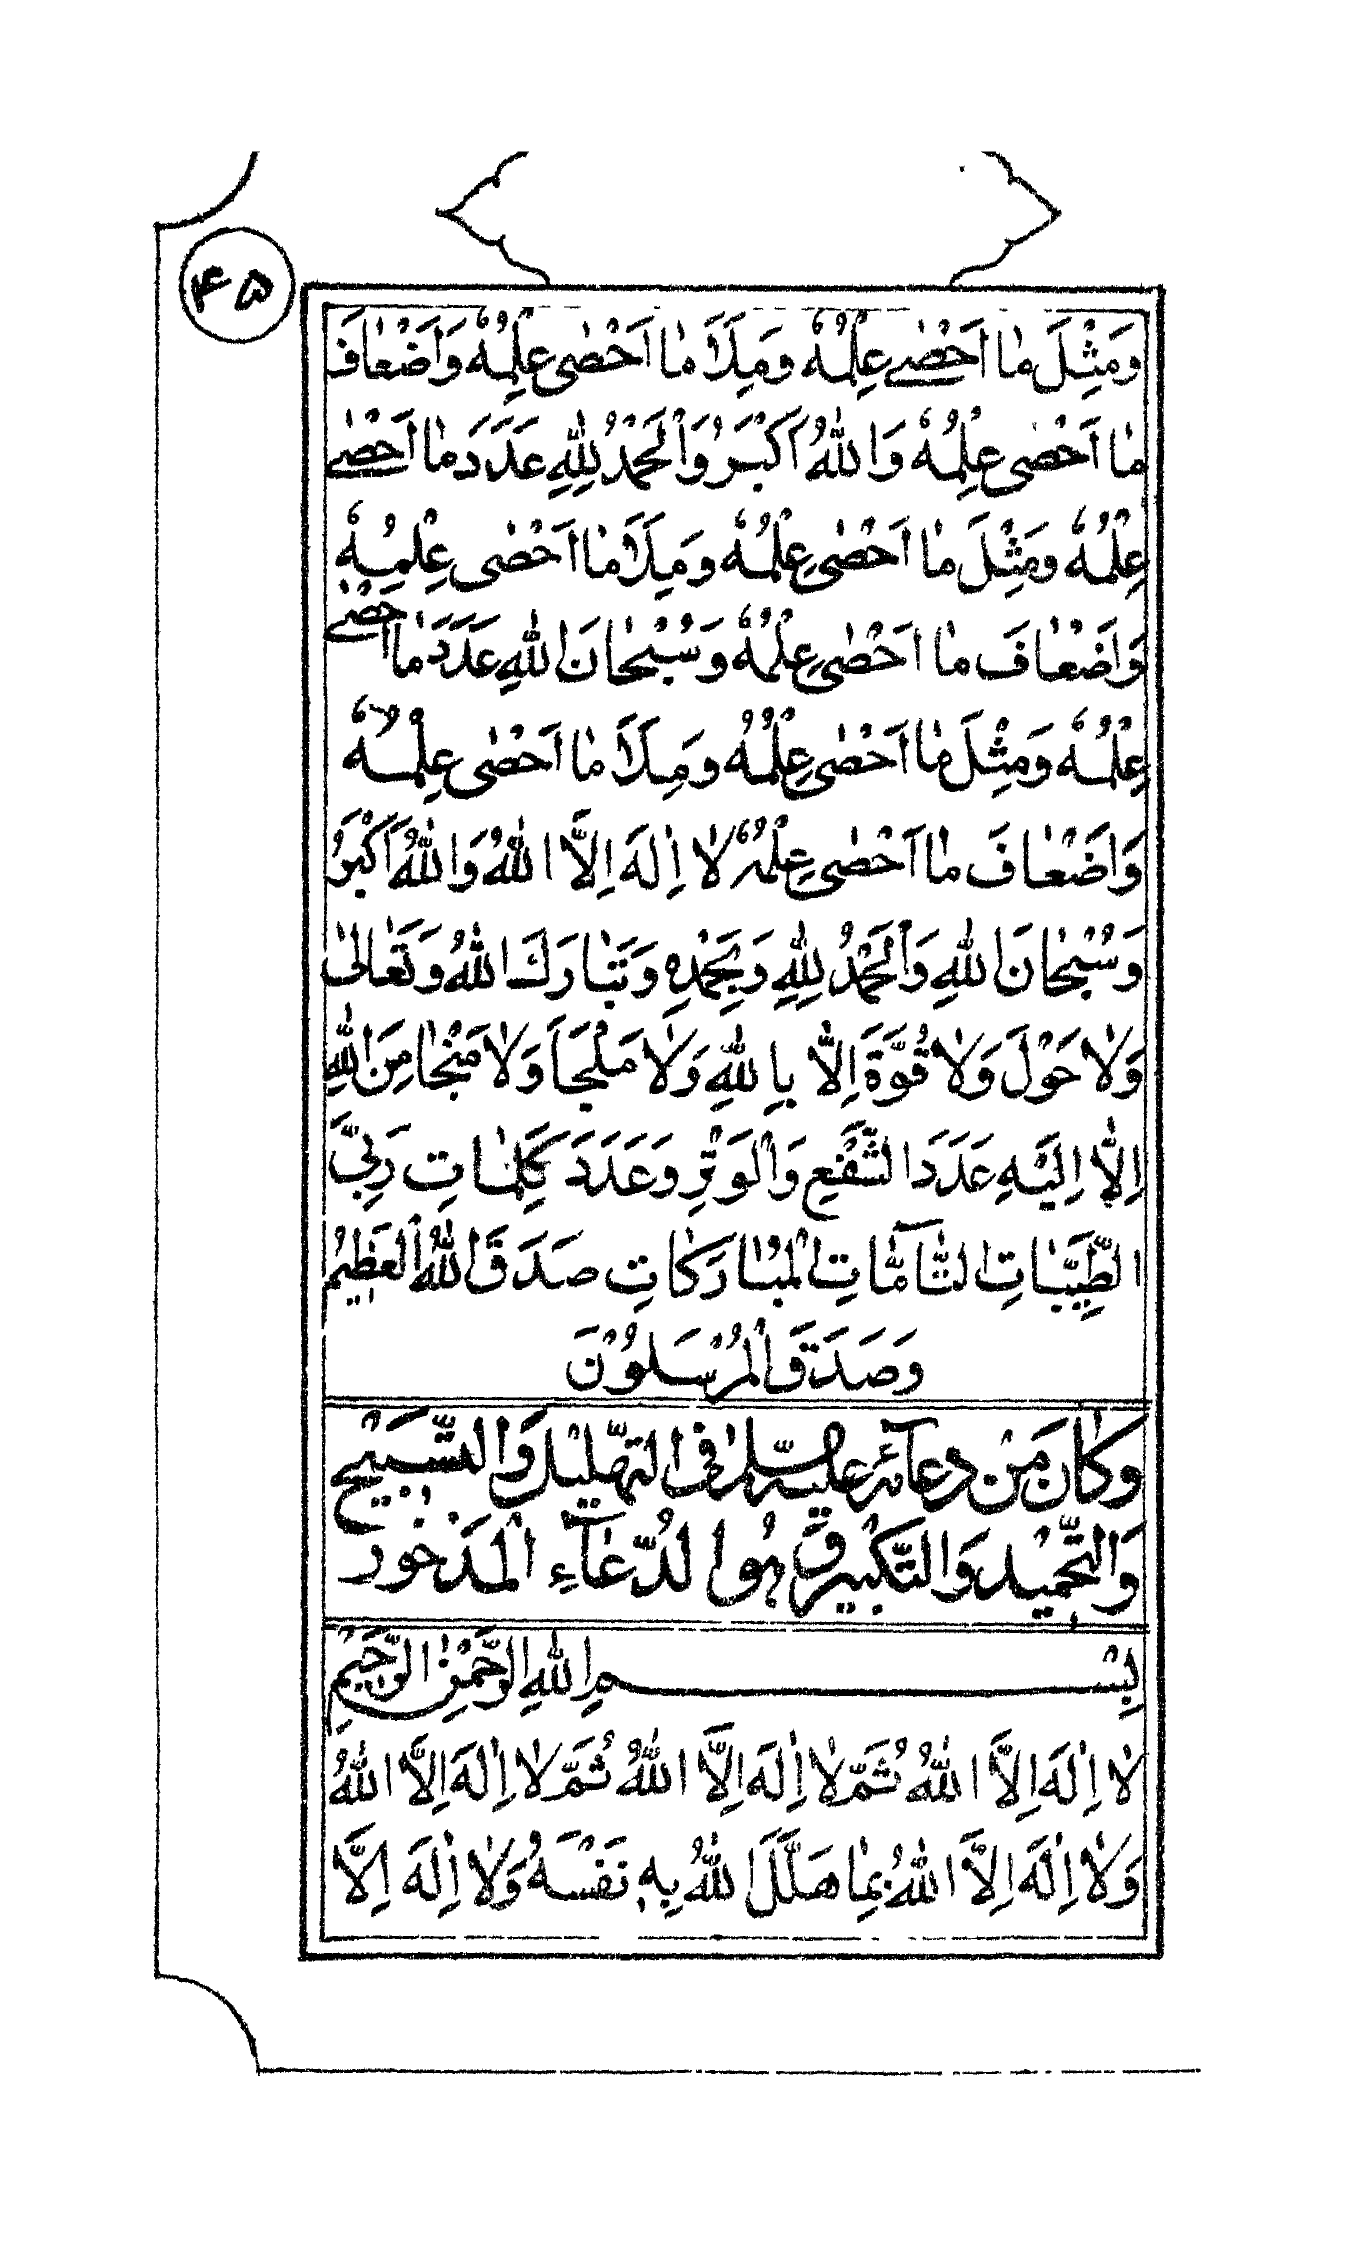 ۴۵
وَمِثْلَ مٰا اَحْصٰے عِلْمُهُ وَمِلَأَ مٰا اَحْصٰی عِلْمُهُ وَاَضْعٰافَ
مٰا اَحْصٰی عِلْمُهُ وَاللّٰهُ اَكْبَرُ وَالْحَمْدُ لِلّٰهِ عَدَدَ مٰا اَحْصٰے
عِلْمُهُ وَمِثْلَ مٰا اَحْصٰی عِلْمُهُ وَمِلَأَ مٰا اَحْصٰی عِلْمُهُ
وَاَضْعٰافَ مٰا اَحْصٰی عِلْمُهُ وَسُبْحٰانَ اللّٰهِ عَدَدَ مٰا اَحْصٰے
عِلْمُهُ وَمِثْلَ مٰا اَحْصٰی عِلْمُهُ وَمِلَأَ مٰا اَحْصٰی عِلْمُهُ
وَاَضْعٰافَ مٰا اَحْصٰی عِلْمُهُ لٰا اِلٰهَ اِلَّا اللّٰهُ وَاللّٰهُ اَكْبَرُ
وَسُبْحٰانَ اللّٰهِ وَالْحَمْدُ لِلّٰهِ وَبِحَمْدِهِ وَتَبٰارَكَ اللّٰهُ وَتَعٰالٰی
وَلٰا حَوْلَ وَلٰا قُوَّةَ اِلّٰا بِاللّٰهِ وَلٰا مَلْجَاَ وَلٰا مَنْجٰا مِنَ اللّٰهِ
اِلّٰا اِلَيْهِ عَدَدَ الشَّفْعِ وَالْوَتْرِ وَعَدَدَ كَلِمٰاتِ رَبِّيَ
الطَّيِّبٰاتِ التّٰآمّٰاتِ الْمُبٰارَكٰاتِ صَدَقَ اللّٰهُ الْعَظِيمُ
وَصَدَقَ الْمُرْسَلُوْنَ
وَكٰانَ مِنْ دُعٰآئِهِ عَلَيْهِ السَّلٰمُ فِی التَّهْلِيْلِ وَالتَّسْبِيْحِ
وَالتَّحْمِيْدِ وَالتَّكْبِيْرِ وَهُوَ الدُّعٰآءِ الْمَذْخُوْر
بِسْمِ اللّٰهِ الرَّحْمٰنِ الرَّحِيْمِ
لٰا اِلٰهَ اِلَّا اللّٰهُ ثُمَّ لٰا اِلٰهَ اِلَّا اللّٰهُ ثُمَّ لٰا اِلٰهَ اِلَّا اللّٰهُ
وَلٰا اِلٰهَ اِلَّا اللّٰهُ بِمٰا هَلَّلَ اللّٰهُ بِهِ نَفْسَهُ وَلٰا اِلٰهَ اِلَّا